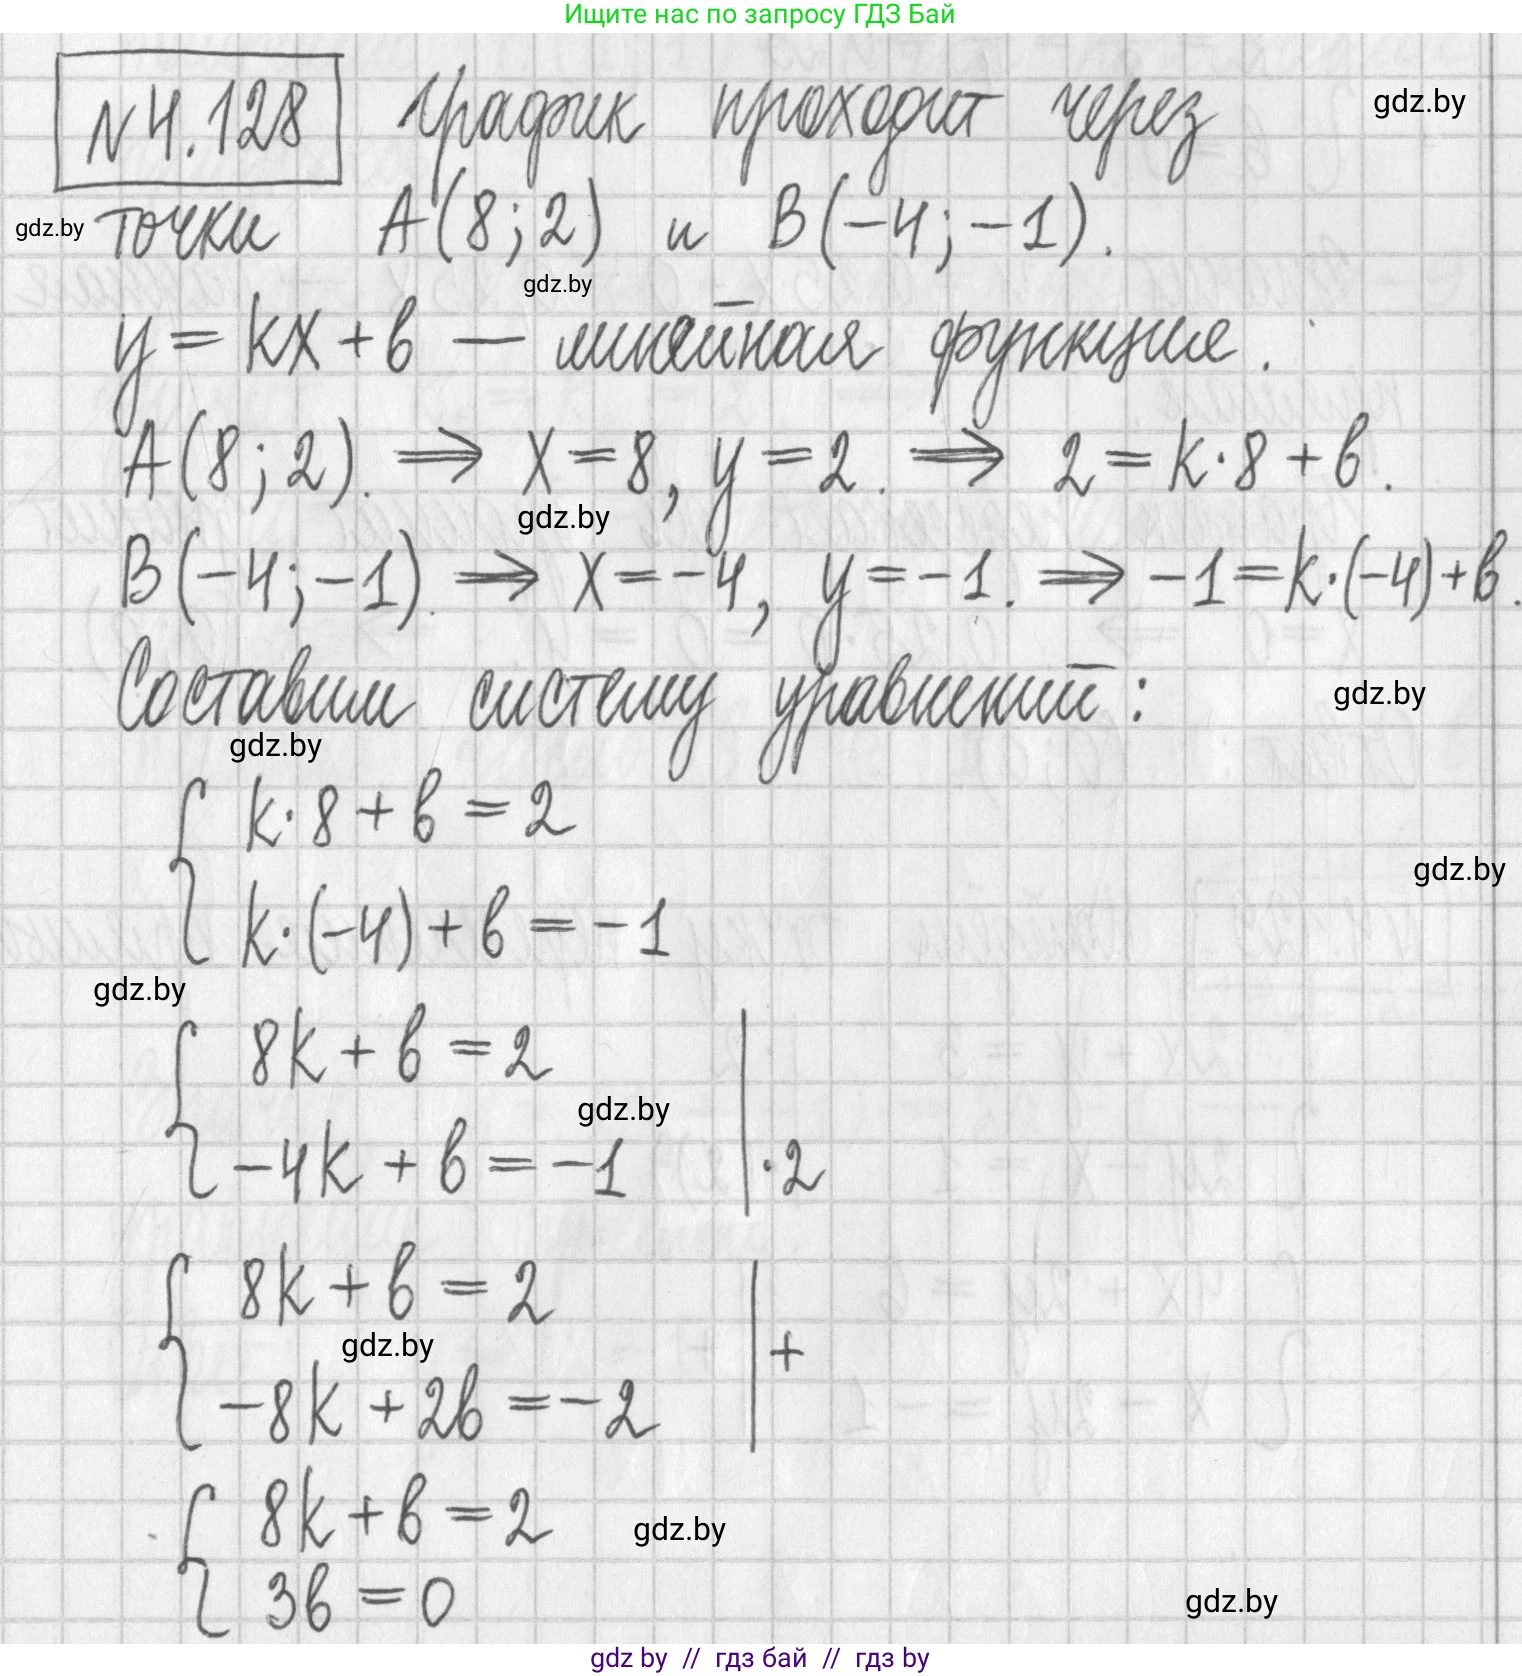 Ищите нас по запросу ГДЗ Бай
N4.128 График проходит через
gdz.by
точки A(8;2) и B(-4;-1).
gdz.by
gdz.by
y = kx + b — линейная функция.
A(8;2). ⟹ x = 8, y = 2. ⟹ 2 = k·8 + b.
gdz.by
B(-4;-1). ⟹ x = -4, y = -1. ⟹ -1 = k·(-4) + b.
Составим систему уравнений:
gdz.by
gdz.by
{ k·8 + b = 2
gdz.by
k·(-4) + b = -1
gdz.by
{ 8k + b = 2
gdz.by
-4k + b = -1 |·2
{ 8k + b = 2
gdz.by
|+
-8k + 2b = -2
{ 8k + b = 2
gdz.by
3b = 0
gdz.by
gdz by // гдз бай // гдз by